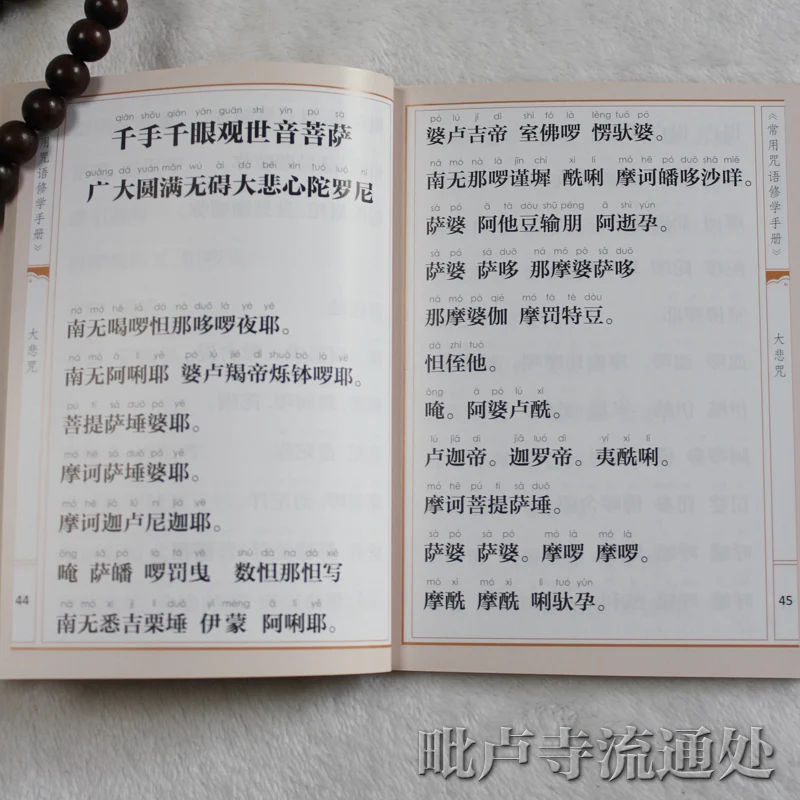 用咒语修学手册》
大悲咒
44
qiān shǒu qiān yǎn guān shì yīn pú sà
千手千眼观世音菩萨
guǎng dà yuán mǎn wú ài dà bēi xīn tuó luó ní
广大圆满无碍大悲心陀罗尼
ná mó hé là dá nà duō là yè yē
南无喝啰怛那哆啰夜耶。
ná mó ā lì yē pó lú jié dì shuò bō là yē
南无阿唎耶 婆卢羯帝烁钵啰耶。
pú tí sà duǒ pó yē
菩提萨埵婆耶。
mó hē sà duǒ pó yē
摩诃萨埵婆耶。
mó hē jiā lú ní jiā yē
摩诃迦卢尼迦耶。
ōng sà pó là fá yè shù dá nà dá xiě
唵 萨皤 啰罚曳 数怛那怛写
ná mó xī jí lì duǒ yī méng ā lì yē
南无悉吉栗埵 伊蒙 阿唎耶。
pó lú jí dì shì fó là lèng tuó pó
婆卢吉帝 室佛啰 愣驮婆。
ná mó nà là jǐn chí xī lì mó hē pó duō shā miē
南无那啰谨墀 醯唎 摩诃皤哆沙咩。
sà pó ā tā dòu shū péng ā shì yùn
萨婆 阿他豆输朋 阿逝孕。
sà pó sà duō nà mó pó sà duō
萨婆 萨哆 那摩婆萨哆
nà mó pó qié mó fá tè dòu
那摩婆伽 摩罚特豆。
dá zhí tā
怛侄他。
ōng ā pó lú xī
唵。阿婆卢醯。
lú jiā dì jiā luó dì yí xī lì
卢迦帝。迦罗帝。夷醯唎。
mó hē pú tí sà duǒ
摩诃菩提萨埵。
sà pó sà pó mó là mó là
萨婆 萨婆。摩啰 摩啰。
mó xī mó xī lì tuó yùn
摩醯 摩醯 唎驮孕。
《常用咒语修学手册》
大悲咒
45
毗卢寺流通处